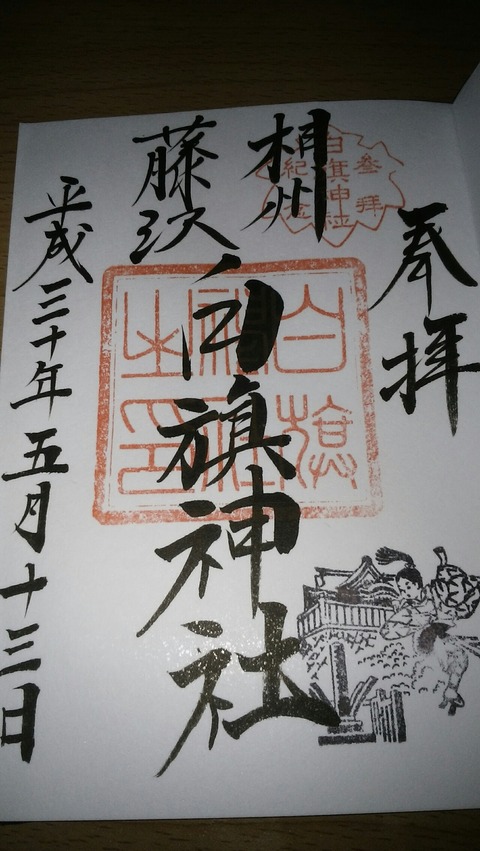 奉拝
白旗神社
参拝
紀念
相州
藤沢
白旗神社
白旗
神社
之印
平成三十年五月十三日